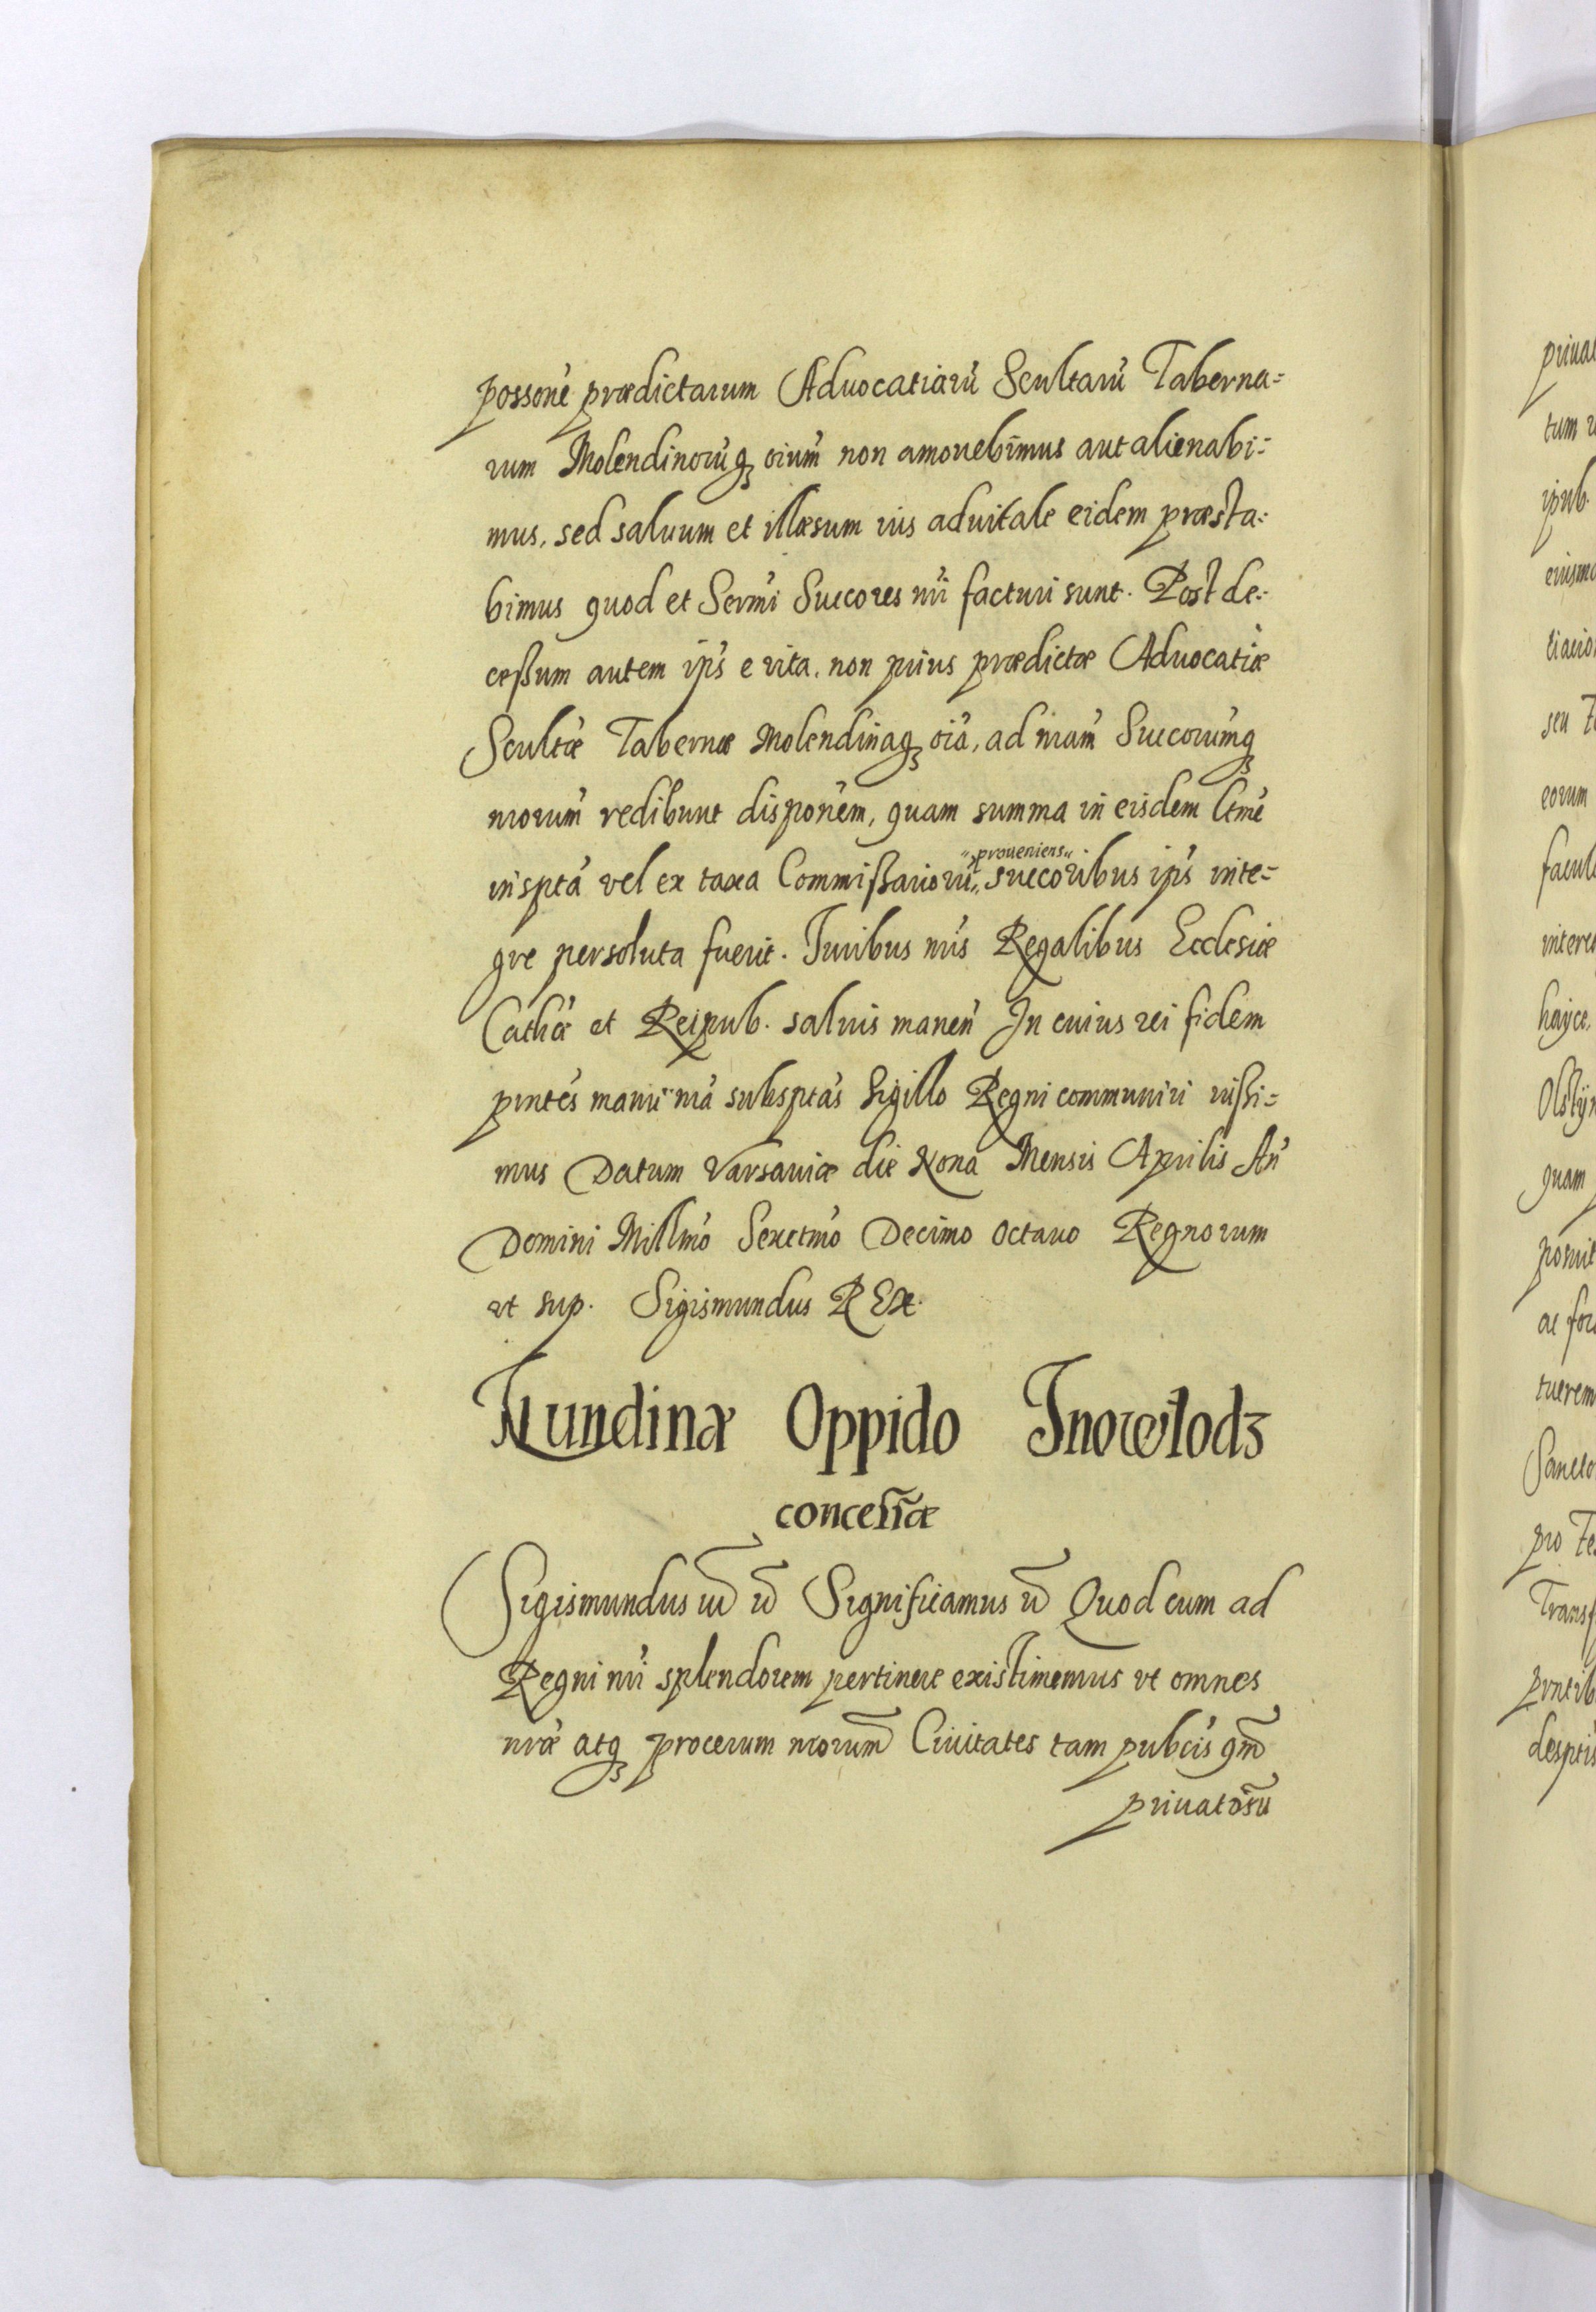 possone prædictarum Aduocatiarū Scultarū Taberna=
rum Molendinorūq₃ oium non amouebimus aut alienabi=
mus, sed saluum et illæsum ius aduitale eidem præsta=
bimus quod et Sermi Succores nri facturi sunt. Post de=
ceßum autem ips e vita, non prius prædictæ Aduocatiæ
Scultæ Tabernæ Molendinaq₃ oia, ad nram Succorumq₃
nrorum redibunt disponem, quam summa in eisdem ltme
inspta vel ex taxa Commißariorū „proueniens„ succoribus ips inte=
gre persoluta fuerit. Iuribus nris Regalibus Ecclesiæ
Cathæ et Reipub. saluis manen In cuius rei fidem
pntes manu nra subsptas Sigillo Regni communiri iußi=
mus Datum Varsauiæ die Nona Mensis Aprilis An
Domini Millmo Sexctmo Decimo Octauo Regnorum
ut sup. Sigismundus REX.
Nundinæ Oppido Inowłodz
concessæ
Sigismundus III ec Significamus ec Quod cum ad
Regni nri splendorem pertinere existimemus vt omnes
nræ atq₃ procerum nrorum Ciuitates tam pubcis qm
priuatorū
priua
tum
ipub.
eiusmo
tiacio
seu
eorum
facul
interes
hayce,
Olstÿn
quam
posuit
ac foro
tuerem
Sancto
pro
Transf
pntib
desptis